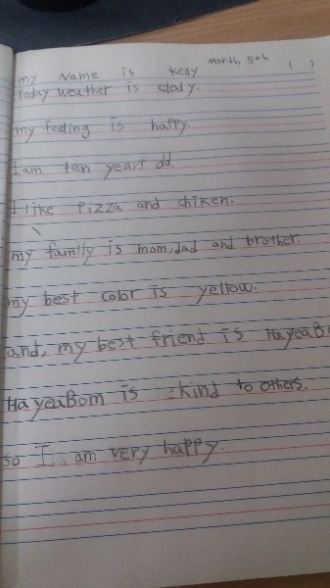 March, 5th ( )
my Name is Kelly
Today weather is clody.
my feeling is happy.
I am ten years old.
I like Pizza and chiken.
my family is mom, dad and brother.
my best color is yellow.
and, my best friend is HayeaB
HayeaBom is kind to others.
so I am very happy.